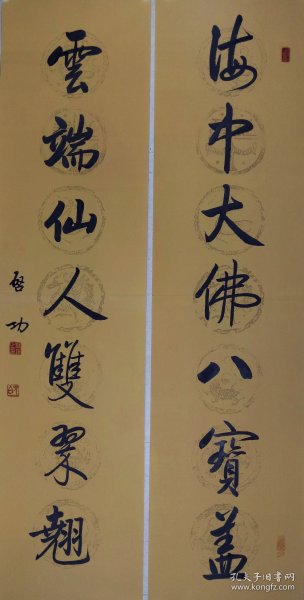 海中大佛八寳盖
雲端仙人雙翠翹
啓功
孔夫子旧书网